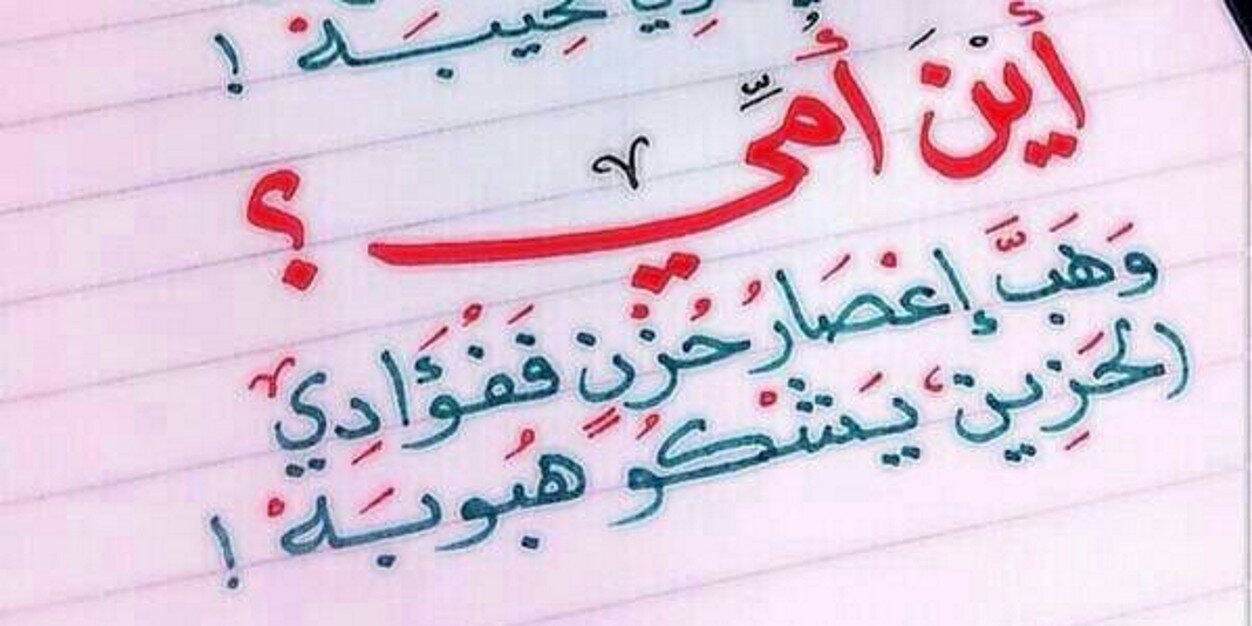 نحيبه !
أَيْنَ أُمِّي ؟
وَهَبَّ إعْصَارُ حُزْنٍ فَفُؤَادِي
الحَزِين، يَشْكُو هُبُوبَهْ !